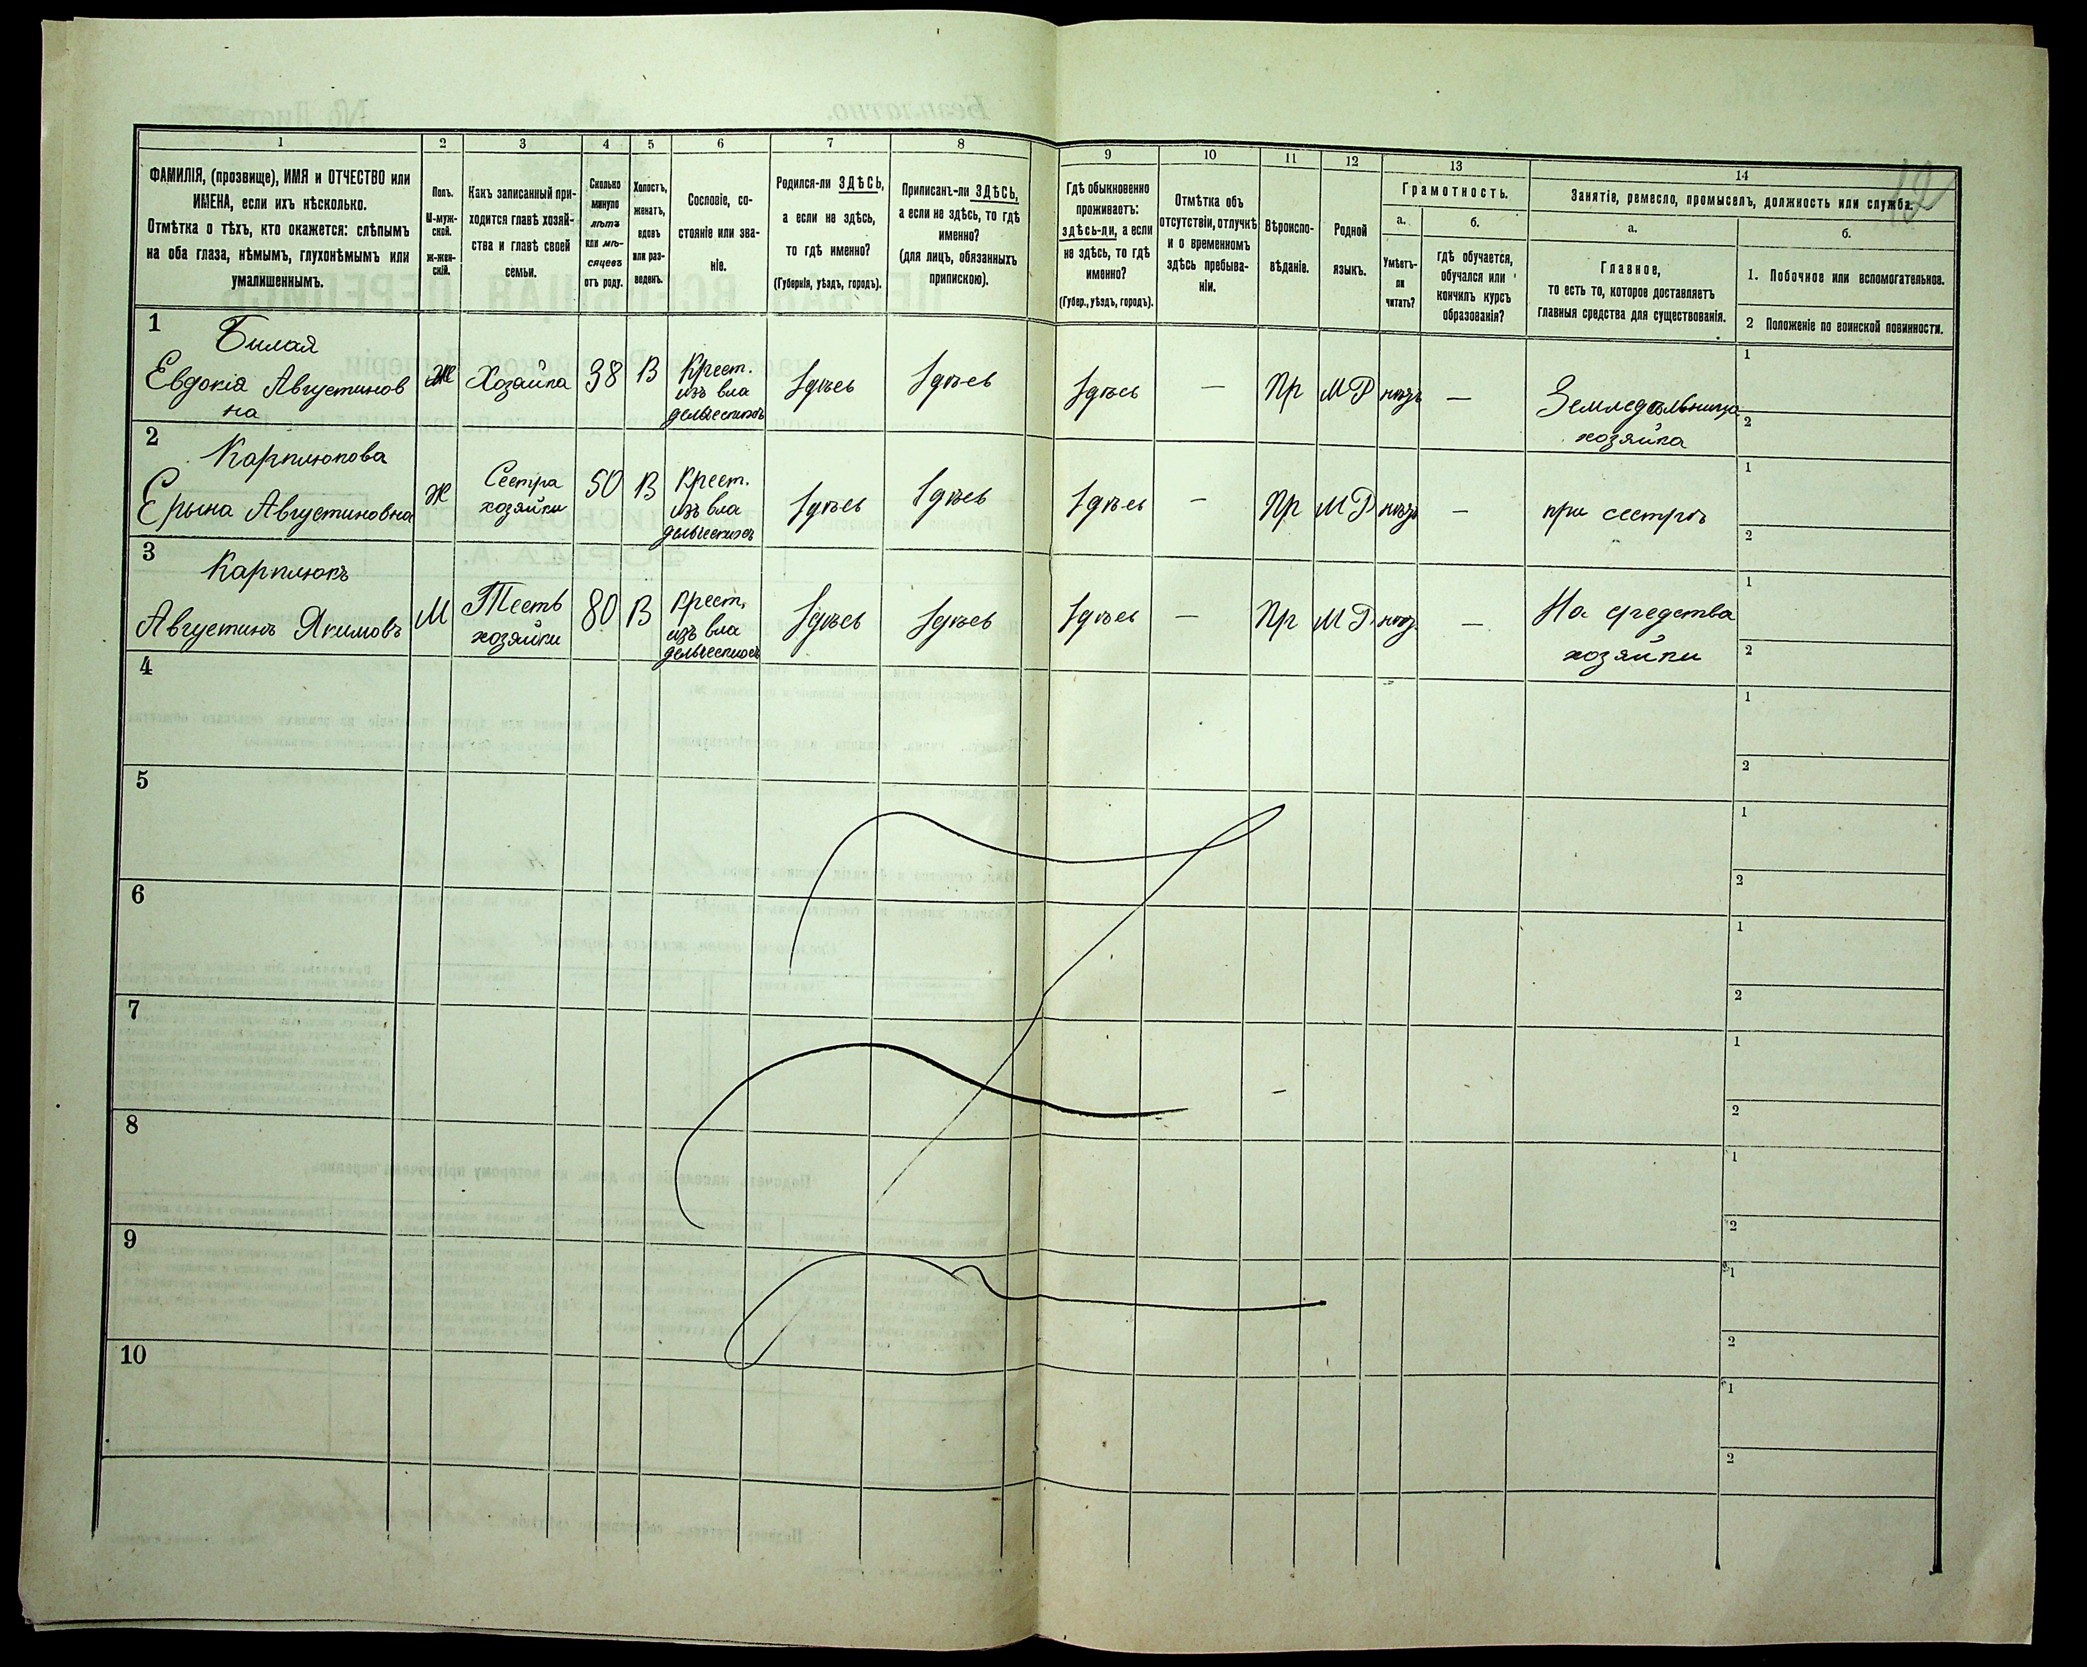 1 2 3 4 5 6 7 8 9 10 11 12 13 14
ФАМИЛІЯ, (прозвище), ИМЯ и ОТЧЕСТВО или
ИМЕНА, если ихъ нѣсколько.
Отмѣтка о тѣхъ, кто окажется: слѣпымъ
на оба глаза, нѣмымъ, глухонѣмымъ или
умалишеннымъ.
Полъ.
М-муж-
ской.
ж-жен-
скій.
Какъ записанный при-
ходится главѣ хозяй-
ства и главѣ своей
семьи.
Сколько
минуло
лѣтъ
или мѣ-
сяцевъ
отъ роду.
Холостъ,
женатъ,
вдовъ
или раз-
веденъ.
Сословіе, со-
стояніе или зва-
ніе.
Родился-ли ЗДѢСЬ,
а если не здѣсь,
то гдѣ именно?
(Губернія, уѣздъ, городъ).
Приписанъ-ли ЗДѢСЬ,
а если не здѣсь, то гдѣ
именно?
(для лицъ, обязанныхъ
припискою).
Гдѣ обыкновенно
проживаетъ:
здѣсь-ли, а если
не здѣсь, то гдѣ
именно?
(Губер., уѣздъ, городъ).
Отмѣтка объ
отсутствіи, отлучкѣ
и о временномъ
здѣсь пребыва-
ніи.
Вѣроиспо-
вѣданіе.
Родной
языкъ.
Грамотность.
а.
Умѣетъ-
ли
читать?
б.
гдѣ обучается,
обучался или
кончилъ курсъ
образованія?
Занятіе, ремесло, промыселъ, должность или служба.
а.
Главное,
то есть то, которое доставляетъ
главныя средства для существованія.
б.
1. Побочное или вспомогательное.
2 Положеніе по воинской повинности.
12
1
Билая
Евдокія Августинов
на
Ж
Хозяйка
38
В
Крест.
изъ вла
дельческихъ
Здѣсь
Здѣсь
Здѣсь
—
Пр
М Р
нѣтъ
—
Земледѣльница
хозяйка
1
2
2
Карплюкова
Ерына Августиновна
Ж
Сестра
хозяйки
50
В
Крест.
изъ вла
дельческихъ
Здѣсь
Здѣсь
Здѣсь
—
Пр
М Р
нѣтъ
—
при сестрѣ
1
2
3
Карплюкъ
Августинъ Якимовъ
М
Тесть
хозяйки
80
В
Крест.
изъ вла
дельческихъ
Здѣсь
Здѣсь
Здѣсь
—
Пр
М Р
—
На средства
хозяйки
1
2
4
1
2
5
1
2
6
1
2
7
1
2
8
1
2
9
1
2
10
1
2